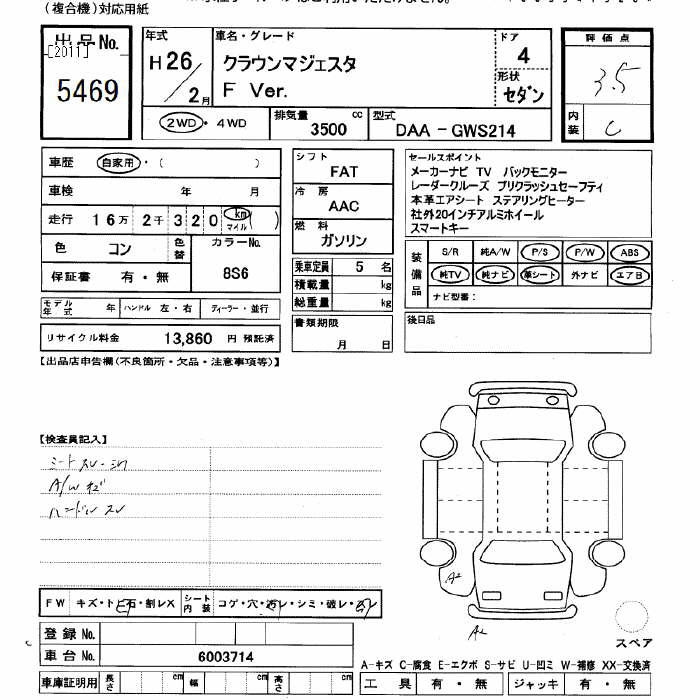 (複合機)対応用紙
出品No.
[2011]
5469
年式
H26/2月
車名・グレード
クラウンマジェスタ
F Ver.
ドア
4
形状
セダン
評価点
3.5
内装
C
2WD・4WD
排気量
3500 cc
型式
DAA-GWS214
車歴 自家用・( )
車検 年 月
走行 16万 2千 3 2 0 km マイル ( )
色 コン
色替
カラーNo.
8S6
保証書 有・無
モデル年式 年
ハンドル 左・右
ディーラー・並行
リサイクル料金 13,860 円 預託済
シフト
FAT
冷房
AAC
燃料
ガソリン
乗車定員 5 名
積載量 kg
総重量 kg
書類期限
月 日
セールスポイント
メーカーナビ TV バックモニター
レーダークルーズ プリクラッシュセーフティ
本革エアシート ステアリングヒーター
社外20インチアルミホイール
スマートキー
装備品
S/R 純A/W P/S P/W ABS
純TV 純ナビ 革シート 外ナビ エアB
ナビ型番:
後日品
【出品店申告欄(不良箇所・欠品・注意事項等)】
【検査員記入】
シートスレ・シワ
A/W キズ
ハンドル スレ
FW キズ・トビ石・割レX
シート内装 コゲ・穴・汚レ・シミ・破レ・スレ
登録No.
車台No. 6003714
車庫証明用 長さ cm 幅 cm 高さ cm
A2
A2
スペア
A-キズ C-腐食 E-エクボ S-サビ U-凹ミ W-補修 XX-交換済
工具 有・無 ジャッキ 有・無